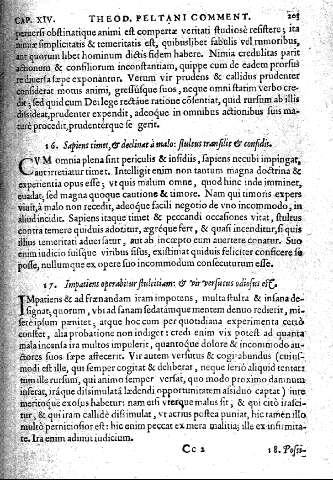 CAP. XIV. THEOD. PELTANI COMMENT. 203
peruersi obstinatique animi est compertæ veritati studiosè resistere; ita
nimiæ simplicitatis & temeritatis est, quibuslibet fabulis vel rumoribus,
aut quorum libet hominum dictis fidem habere. Nimia credulitas parit
actionum & consiliorum inconstantiam, quippe cum de eadem prorsus
re diuersa sæpe exponantur. Verum vir prudens & callidus prudenter
considerat motus animi, gressúsque suos, neque omni statim verbo cre-
dit; sed quid cum Dei lege rectáue ratione cōsentiat, quid rursum ab illis
dissideat, prudenter expendit, adeoque in omnibus actionibus suis ma-
turè procedit, prudenterque se gerit.
16. Sapiens timet, & declinat à malo: stultus transilit & confidit.
CVM omnia plena sint periculis & insidiis, sapiens necubi impingat,
aut irretiatur timet. Intelligit enim non tantum magna doctrina &
experientia opus esse; vt quis malum omne, quod hinc inde imminet,
euadat; sed magna quoque cautione & timore. Nam qui timoris expers
viuit, à malo non recedit, adeoque facili negotio de vno incommodo, in
aliud incidit. Sapiens itaque timet & peccandi occasiones vitat, stultus
contra temere quiduis adoritur, ægréque fert, & quasi incenditur, si quis
illius temeritati aduersatur, aut ab incœpto eum auertere conatur. Suo
enim iudicio suisque viribus fisus, existimat quiduis feliciter conficere se
posse, nullumque ex opere suo incommodum consecuturum esse.
17. Impatiens operabitur stultitiam: & vir versutus odiosus est.
IMpatiens & ad frænandam iram impotens, multa stulta & insana de-
signat; quorum, vbi ad sanam sedatámque mentem denuo redierit, mi-
serè ipsum pœnitet, atque hoc cum per quotidiana experimenta certò
constet, alia probatione non indiget: credi enim vix potest ad quanta
mala incensa ira multos impulerit, quantoque dolore & incommodo au-
ctores suos sæpe affecerit. Vir autem versutus & cogitabundus (cuius-
modi est ille, qui semper cogitat & deliberat, neque seriò aliquid tentat;
tum ille rursum, qui animo semper versat, quo modo proximo damnum
inferat, irá que dissimulata lædendi opportunitatem assiduo captat) iure
meritoque exosus habetur: nam etsi vterque malus sit, & qui citò irasci-
tur, & qui iram callidè dissimulat, vt acrius postea puniat, hic tamen illo
multò perniciosior est: hic enim peccat ex mera malitia; ille ex infirmita-
te. Ira enim adimit iudicium.
Cc 2 18. Possi-